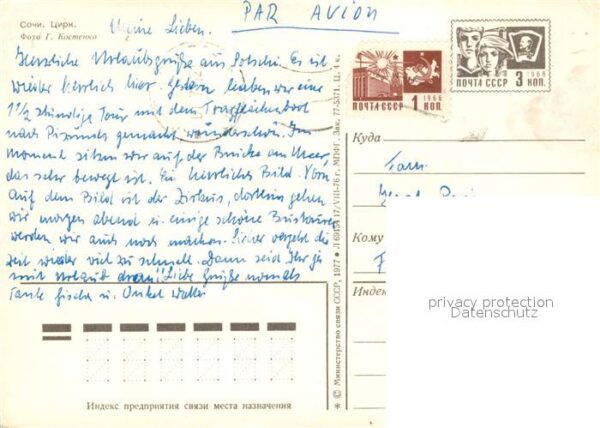 Сочи. Цирк.
Фото Г. Костенко
PAR AVION
Meine Lieben.
Herzliche Urlaubsgrüße aus Sotschi. Es ist
wieder herrlich hier. Gestern haben wir eine
1 1/2 stündige Tour mit dem Tragflächenboot
nach Pizunda gemacht, wunderschön. Im
Moment sitzen wir auf der Brücke am Meer,
das sehr bewegt ist. Ein herrliches Bild. Vorn
auf dem Bild ist der Zirkus, dorthin gehen
wir morgen abend u. einige schöne Bustouren
werden wir auch noch machen. Sicher vergeht die
Zeit wieder viel zu schnell. Dann seid Ihr ja
mit Urlaub dran!! Liebe Grüße nomals
Tante u. Onkel
ПОЧТА СССР 1966 1 КОП.
ПОЧТА СССР 1966 3 КОП.
Куда
Fam.
Кому
F
Индекс
privacy protection
Datenschutz
Индекс предприятия связи места назначения
* © Министерство связи СССР, 1977 * 17/VIII-76 г. МПФГ. Зак. 77-5371. Ц. 4 к.